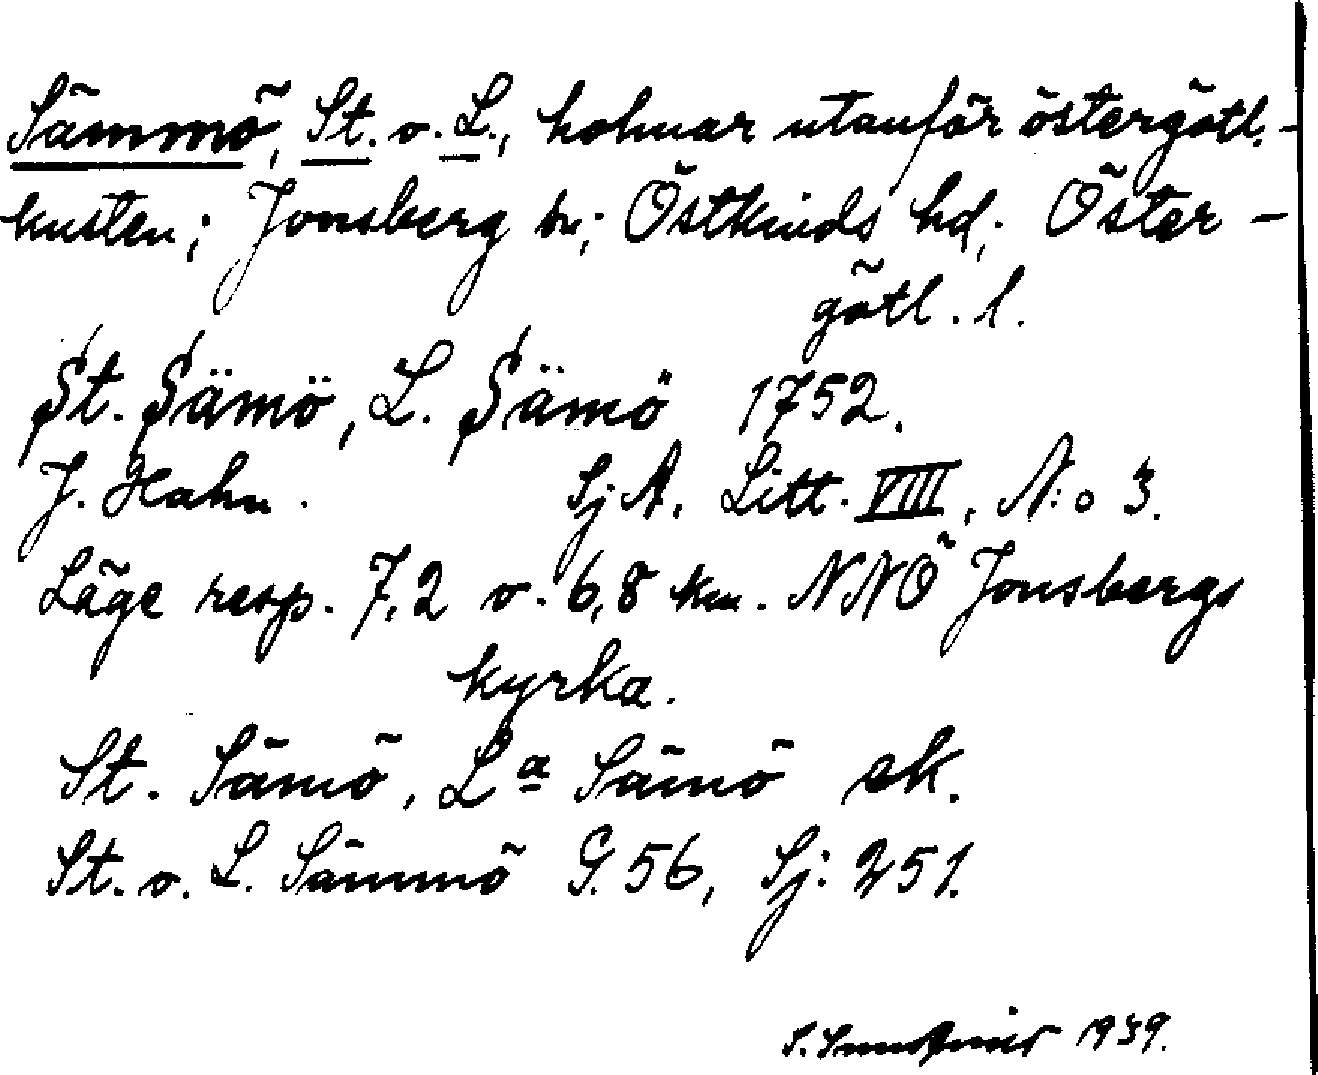 Sämmö, St. o. L., holmar utanför östergötl.-
kusten; Jonsberg sn; Östkinds hd; Öster-
götl. l.
St. Sämö, L. Sämö 1752.
J. Hahn. SjA. Litt. VIII, N:o 3.
Läge resp. 7,2 o. 6,8 km. NNÖ Jonsbergs
kyrka.
St. Sämö, La Sämö ek.
St. o. L. Sämmö G. 56, Sj: 251.
S. 1939.